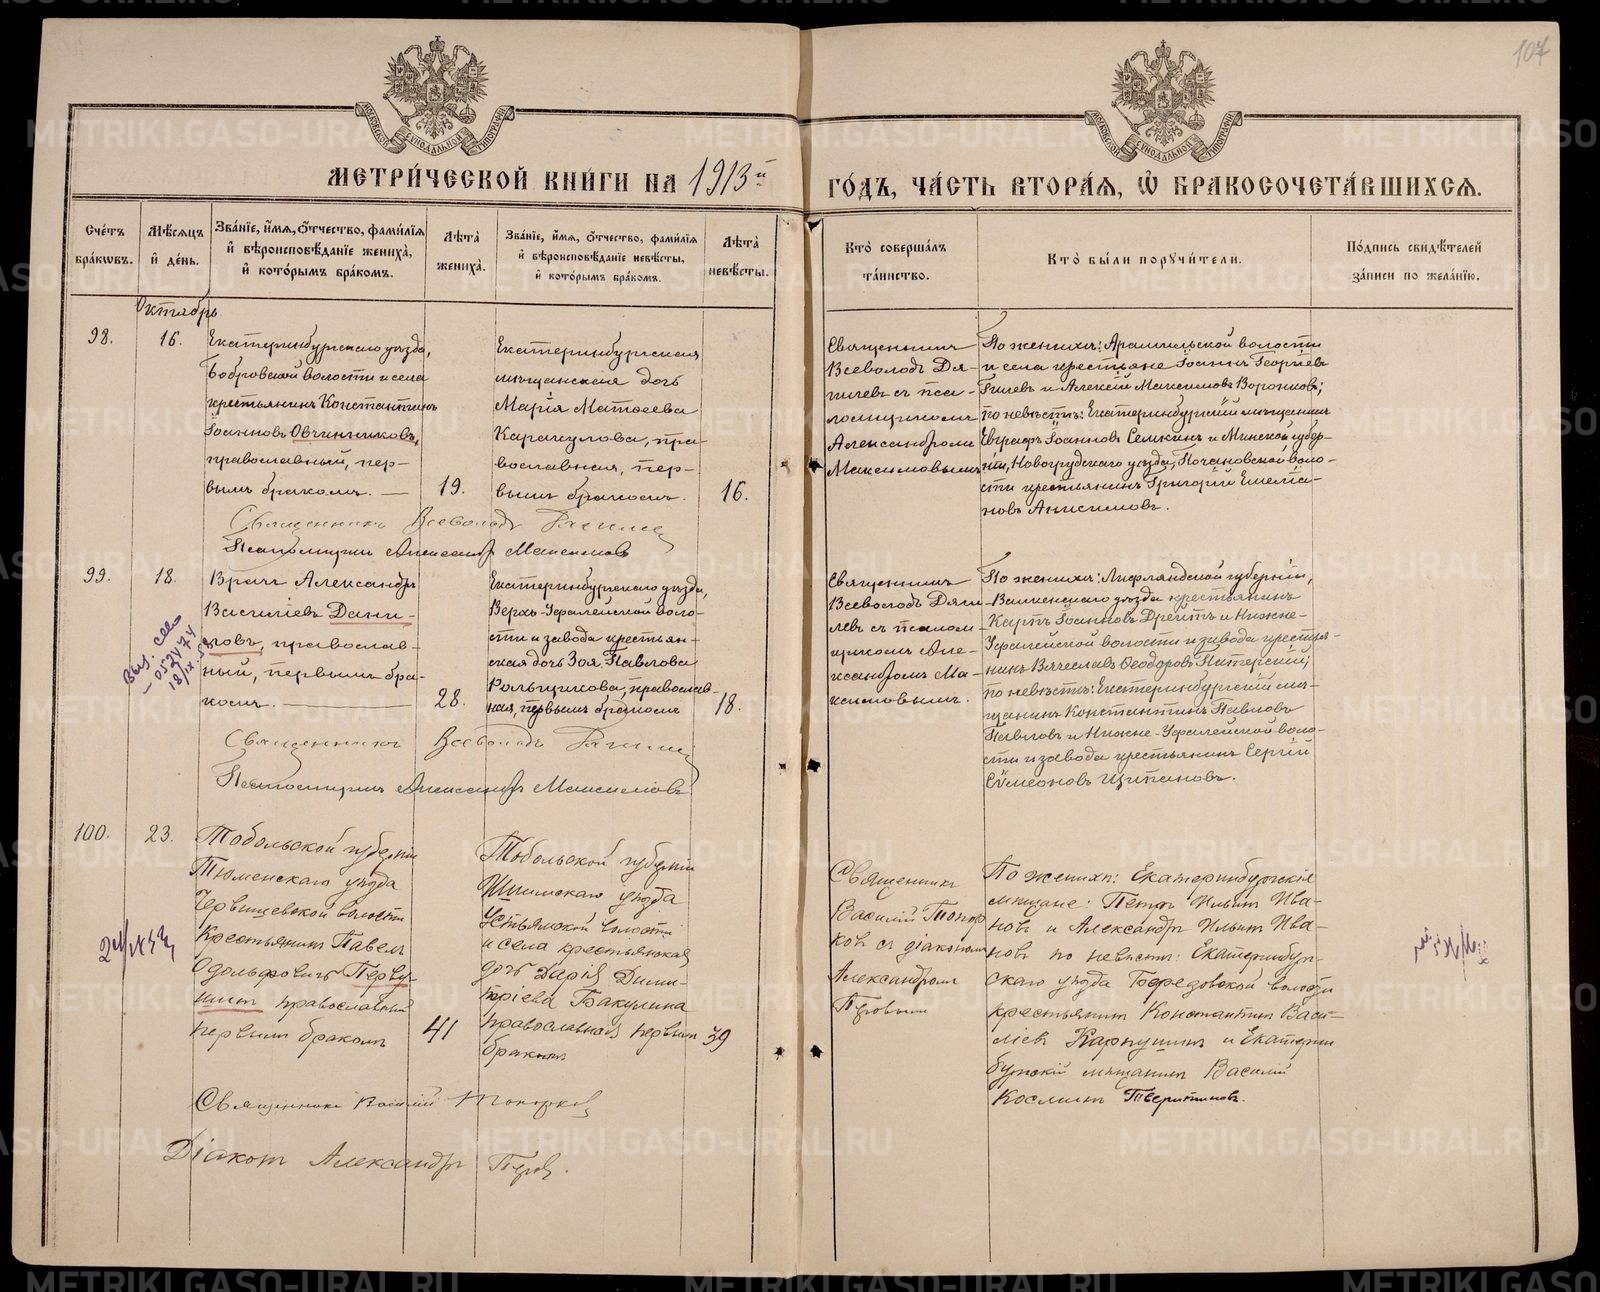 107
МОСКОВСКОЙ СѴНОДАЛЬНОЙ ТИПОГРАФІИ
МОСКОВСКОЙ СѴНОДАЛЬНОЙ ТИПОГРАФІИ
МЕТРИ́ЧЕСКОЙ КНИ́ГИ НА 1913й
ГО́ДЪ, ЧА́СТЬ ВТОРА́Я, Ѡ҆ БРАКОСОЧЕТА́ВШИХСЯ.
Сче́тъ
бра́кѡвъ.
Мѣ́сяцъ
и҆ де́нь.
Зва́нїе, и҆́мя, ѻ҆́тчество, фами́лїя
и҆ вѣроисповѣ́данїе жениха̀,
и҆ кото́рымъ бра́комъ.
Лѣ́та
жениха̀.
Зва́нїе, и҆́мя, ѻ҆́тчество, фами́лїя
и҆ вѣроисповѣ́данїе невѣ́сты,
и҆ кото́рымъ бра́комъ.
Лѣ́та
невѣ́сты.
Кто̀ соверша́лъ
та́инство.
Кто̀ бы́ли порꙋчи́тели.
По́дпись свидѣ́телей
за́писи по жела́нїю.
Октябрь
98.
16.
Екатеринбургскаго уѣзда,
Бобровской волости и села
крестьянинъ Константинъ
Іоанновъ Овчинниковъ,
православный, пер-
вымъ бракомъ. —
19.
Екатеринбургская
мѣщанская дочь
Марія Матѳеева
Карагулова, пра-
вославная, пер-
вымъ бракомъ.
16.
Священникъ
Всеволодъ Дя-
гилевъ съ пса-
ломщикомъ
Александромъ
Максимовымъ
По женихѣ: Арамильской волости
и села крестьяне Іоаннъ Георгіевъ
Гилевъ и Алексій Максимовъ Воронковъ;
по невѣстѣ: Екатеринбургскій мѣщанинъ
Евграфъ Іоанновъ Семкинъ и Минской губер-
ніи, Новогрудскаго уѣзда, Почановской воло-
сти крестьянинъ Григорій Емелiа-
новъ Анисимовъ.
Священникъ Всеволодъ
Псаломщикъ Александръ Максимовъ
99.
18.
Врачъ Александръ
Василіевъ Дани-
ловъ, православ-
ный, первымъ бра-
комъ. —
28.
Екатеринбургскаго уѣзда,
Верхъ-Уфалейской воло-
сти и завода крестьян-
ская дочь Зоя Павлова
Рольщикова, православ-
ная, первымъ бракомъ
18.
Священникъ
Всеволодъ Дяги-
левъ съ псалом-
щикомъ Але-
ксандромъ Ма-
ксимовымъ.
По женихѣ: Лифляндской губерніи,
Валкенскаго уѣзда крестьянинъ
Карлъ Іоанновъ Дрейтъ и Нижне-
Уфалейской волости и завода крестья-
нинъ Вячеславъ Ѳеодоровъ Питерскій;
по невѣстѣ: Екатеринбургскій мѣ-
щанинъ Константинъ Павловъ
Павловъ и Нижне-Уфалейской воло-
сти и завода крестьянинъ Сергій
Сѵмеоновъ Щипановъ.
052474
Священникъ Всеволодъ
Псаломщикъ Александръ Максимовъ
100.
23.
Тобольской губерніи
Тюменскаго уѣзда
Червишевской волости
Крестьянинъ Павелъ
Одольфовичъ Перву-
шинъ православный
первымъ бракомъ
41
Тобольской губерніи
Ишимскаго уѣзда
Устьламской волости
и села крестьянская
дочь Дарія Дими-
тріева Бакулина
православная первым
бракомъ
39
Священникъ
Василій Топор
ковъ съ діакономъ
Александромъ
Перовымъ
По женихѣ: Екатеринбургскіе
мѣщане: Петръ Ильинъ Ива-
новъ и Александръ Ильинъ Ива-
новъ по невѣстѣ: Екатеринбур-
скаго уѣзда волости
крестьянинъ Константинъ Васи-
ліевъ Карпушинъ и Екатерин
бургскій мѣщанинъ Василій
Косминъ Тверитиновъ.
Священникъ Василій Топорков
Діаконъ Александръ Перов.